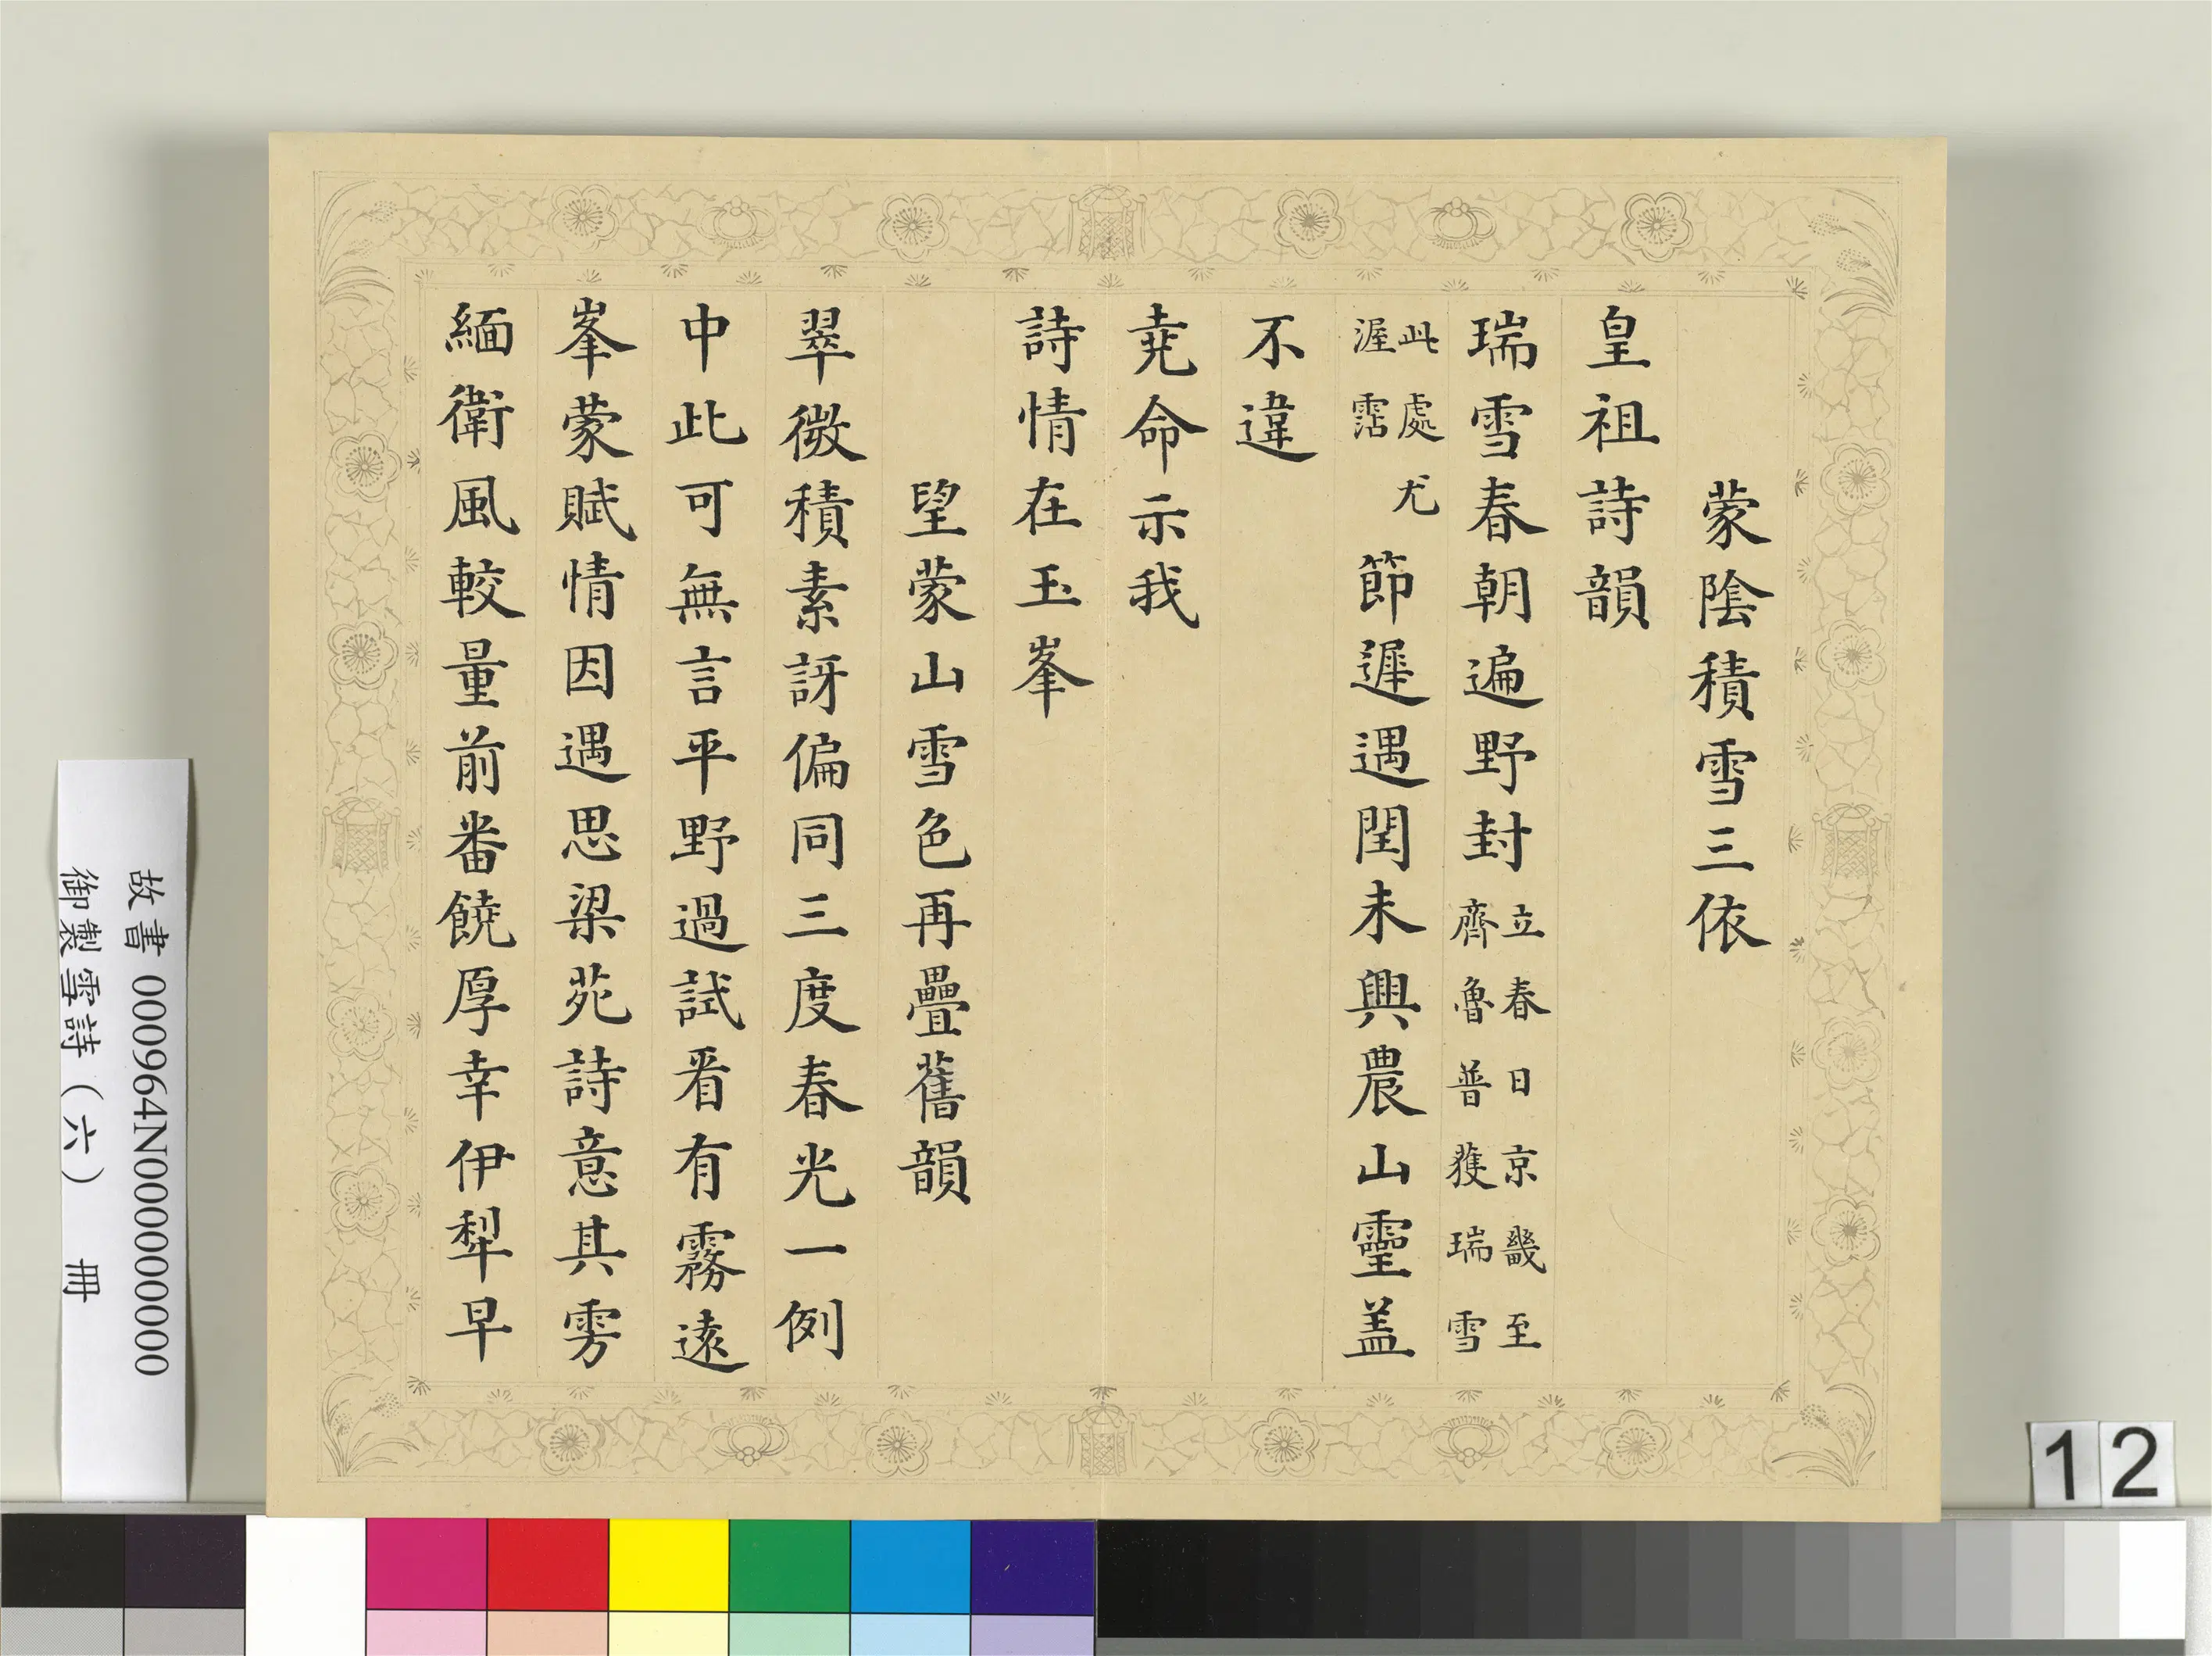 蒙陰積雪三依
皇祖詩韻
瑞雪春朝遍野封立春日京畿至齊魯普獲瑞雪
此處尤渥霑節遲遇閏未興農山靈盖
不違
堯命示我
詩情在玉峯
望蒙山雪色再疊舊韻
翠微積素訝偏同三度春光一例
中此可無言平野過試看有霧遠
峯蒙賦情因遇思梁苑詩意其雱
緬衛風較量前番饒厚幸伊犁早
故書 000964N000000000
御製雪詩（六） 冊
12